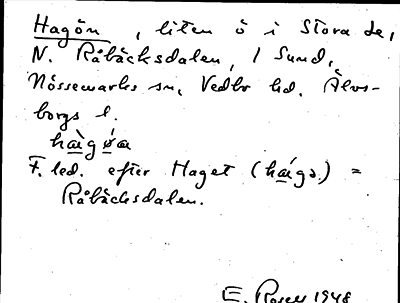 Hagön, liten ö i Stora Le,
N. Råbäcksdalen, / Sund,
Nössemarks sn, Vedbo hd. Älvs-
borgs l.
F. led. efter Haget (          ) =
Råbäcksdalen.
E. Rosell 1948